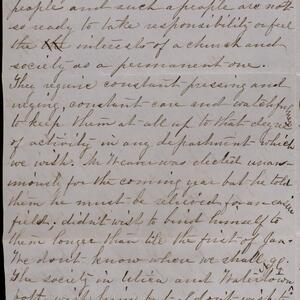 people and such a people are not
so ready to take responsibility or feel
the interests of a church and
society as a permanent one.
They require constant pressing and
urging, constant care and watchful
to keep them at all up to that degree
of activity in any department which
we wish. Mr Weaver was elected unan-
imously for the coming year but he told
them he must be relieved for an easier
field, didn't wish to bind himself to
them longer than till the first of Jan.
We don't know where we shall go.
The society in Utica and Watertown
both